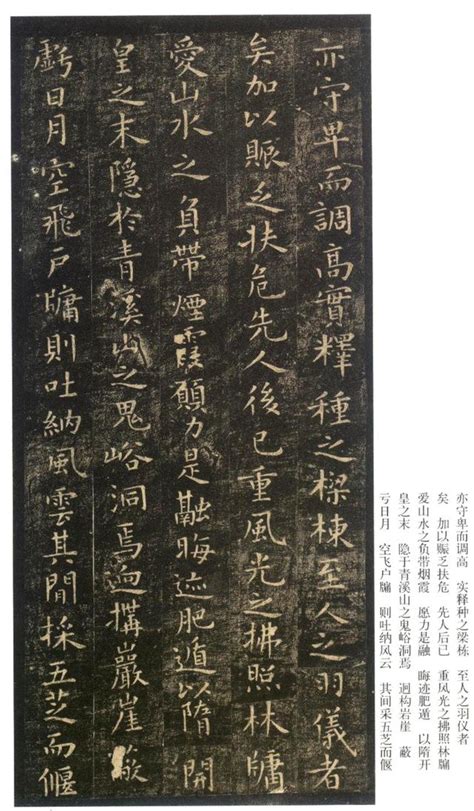 亦守卑而調髙實釋種之樑棟至人之羽儀者
矣加以賑乏扶危先人後已重風光之拂照林牗
愛山水之負帶煙霞願力是融晦迹肥遁以隋開
皇之末隱於青溪山之鬼峪洞焉迥搆巖崖蔽
虧日月空飛户牗則吐納風雲其閒採五芝而偃
亦守卑而调高　实释种之梁栋　至人之羽仪者
矣　加以赈乏扶危　先人后已　重风光之拂照林牖
爱山水之负带烟霞　愿力是融　晦迹肥遁　以隋开
皇之末　隐于青溪山之鬼峪洞焉　迥构岩崖　蔽
亏日月　空飞户牖　则吐纳风云　其间采五芝而偃